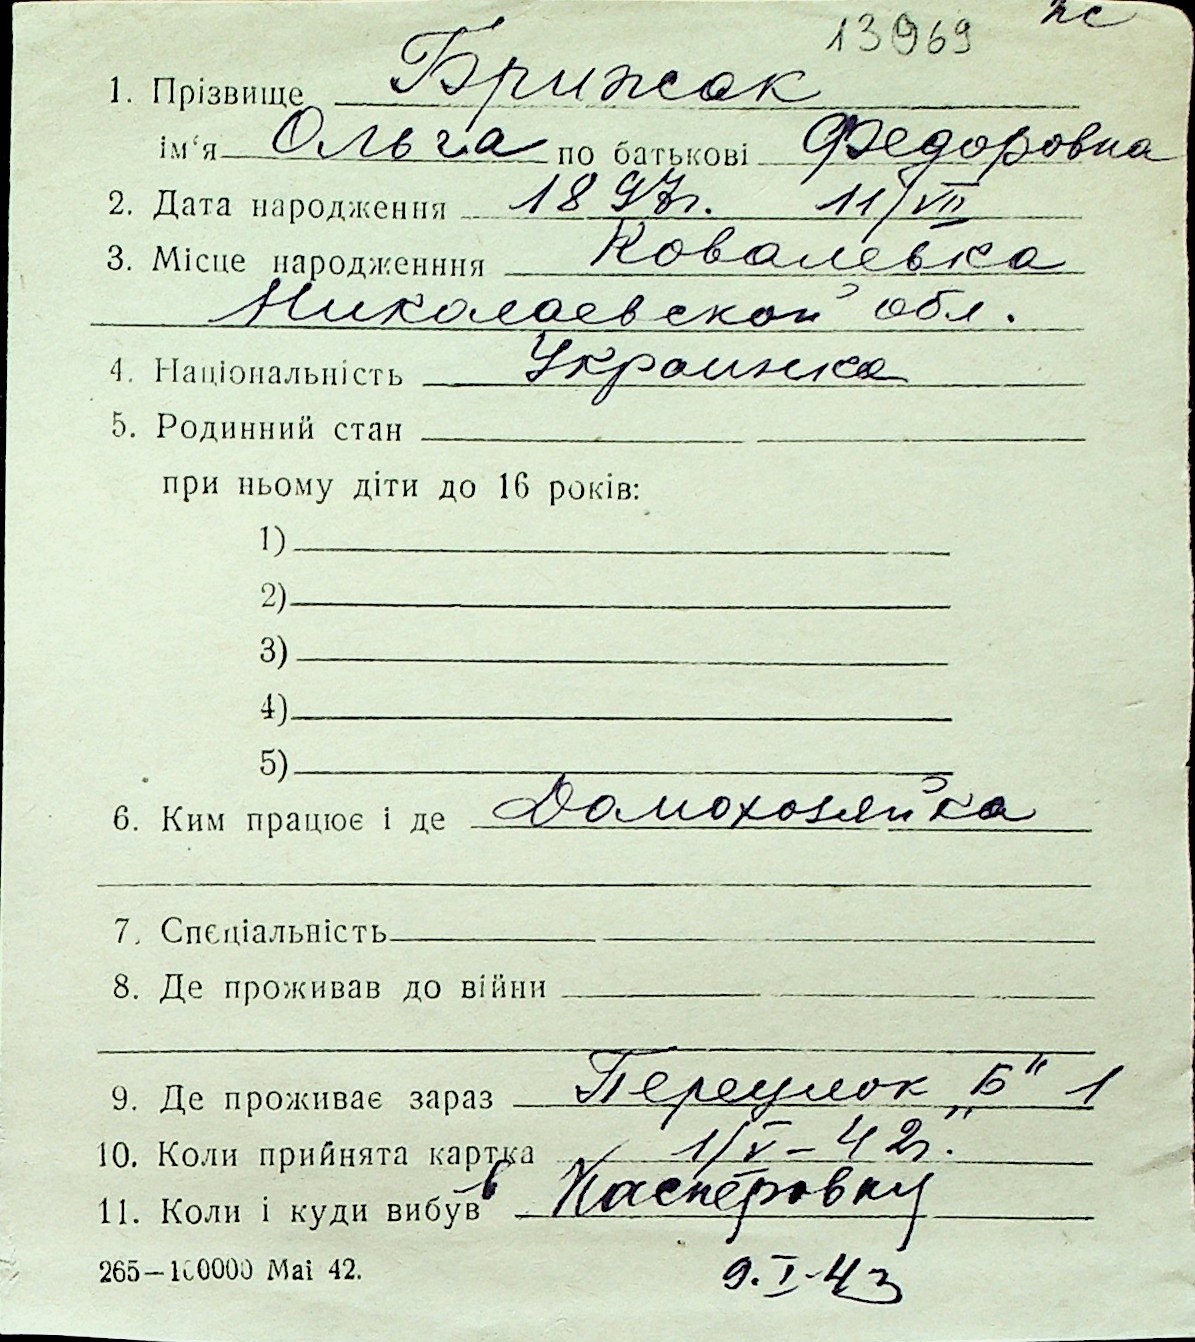 13969 пс
1. Прізвище Брижак
ім‘я Ольга по батькові Федоровна
2. Дата народження 1897г. 11/VII
3. Місце народженння Ковалевка
Николаевской обл.
4. Національність Украинка
5. Родинний стан
при ньому діти до 16 років:
1)
2)
3)
4)
5)
6. Ким працює і де Домохозяйка
7. Спєціальність
8. Де проживав до війни
9. Де проживає зараз Переулок „Б“ 1
10. Коли прийнята картка 1/V – 42г.
11. Коли і куди вибув в Касперовку
265—100000 Mai 42. 9.I-43